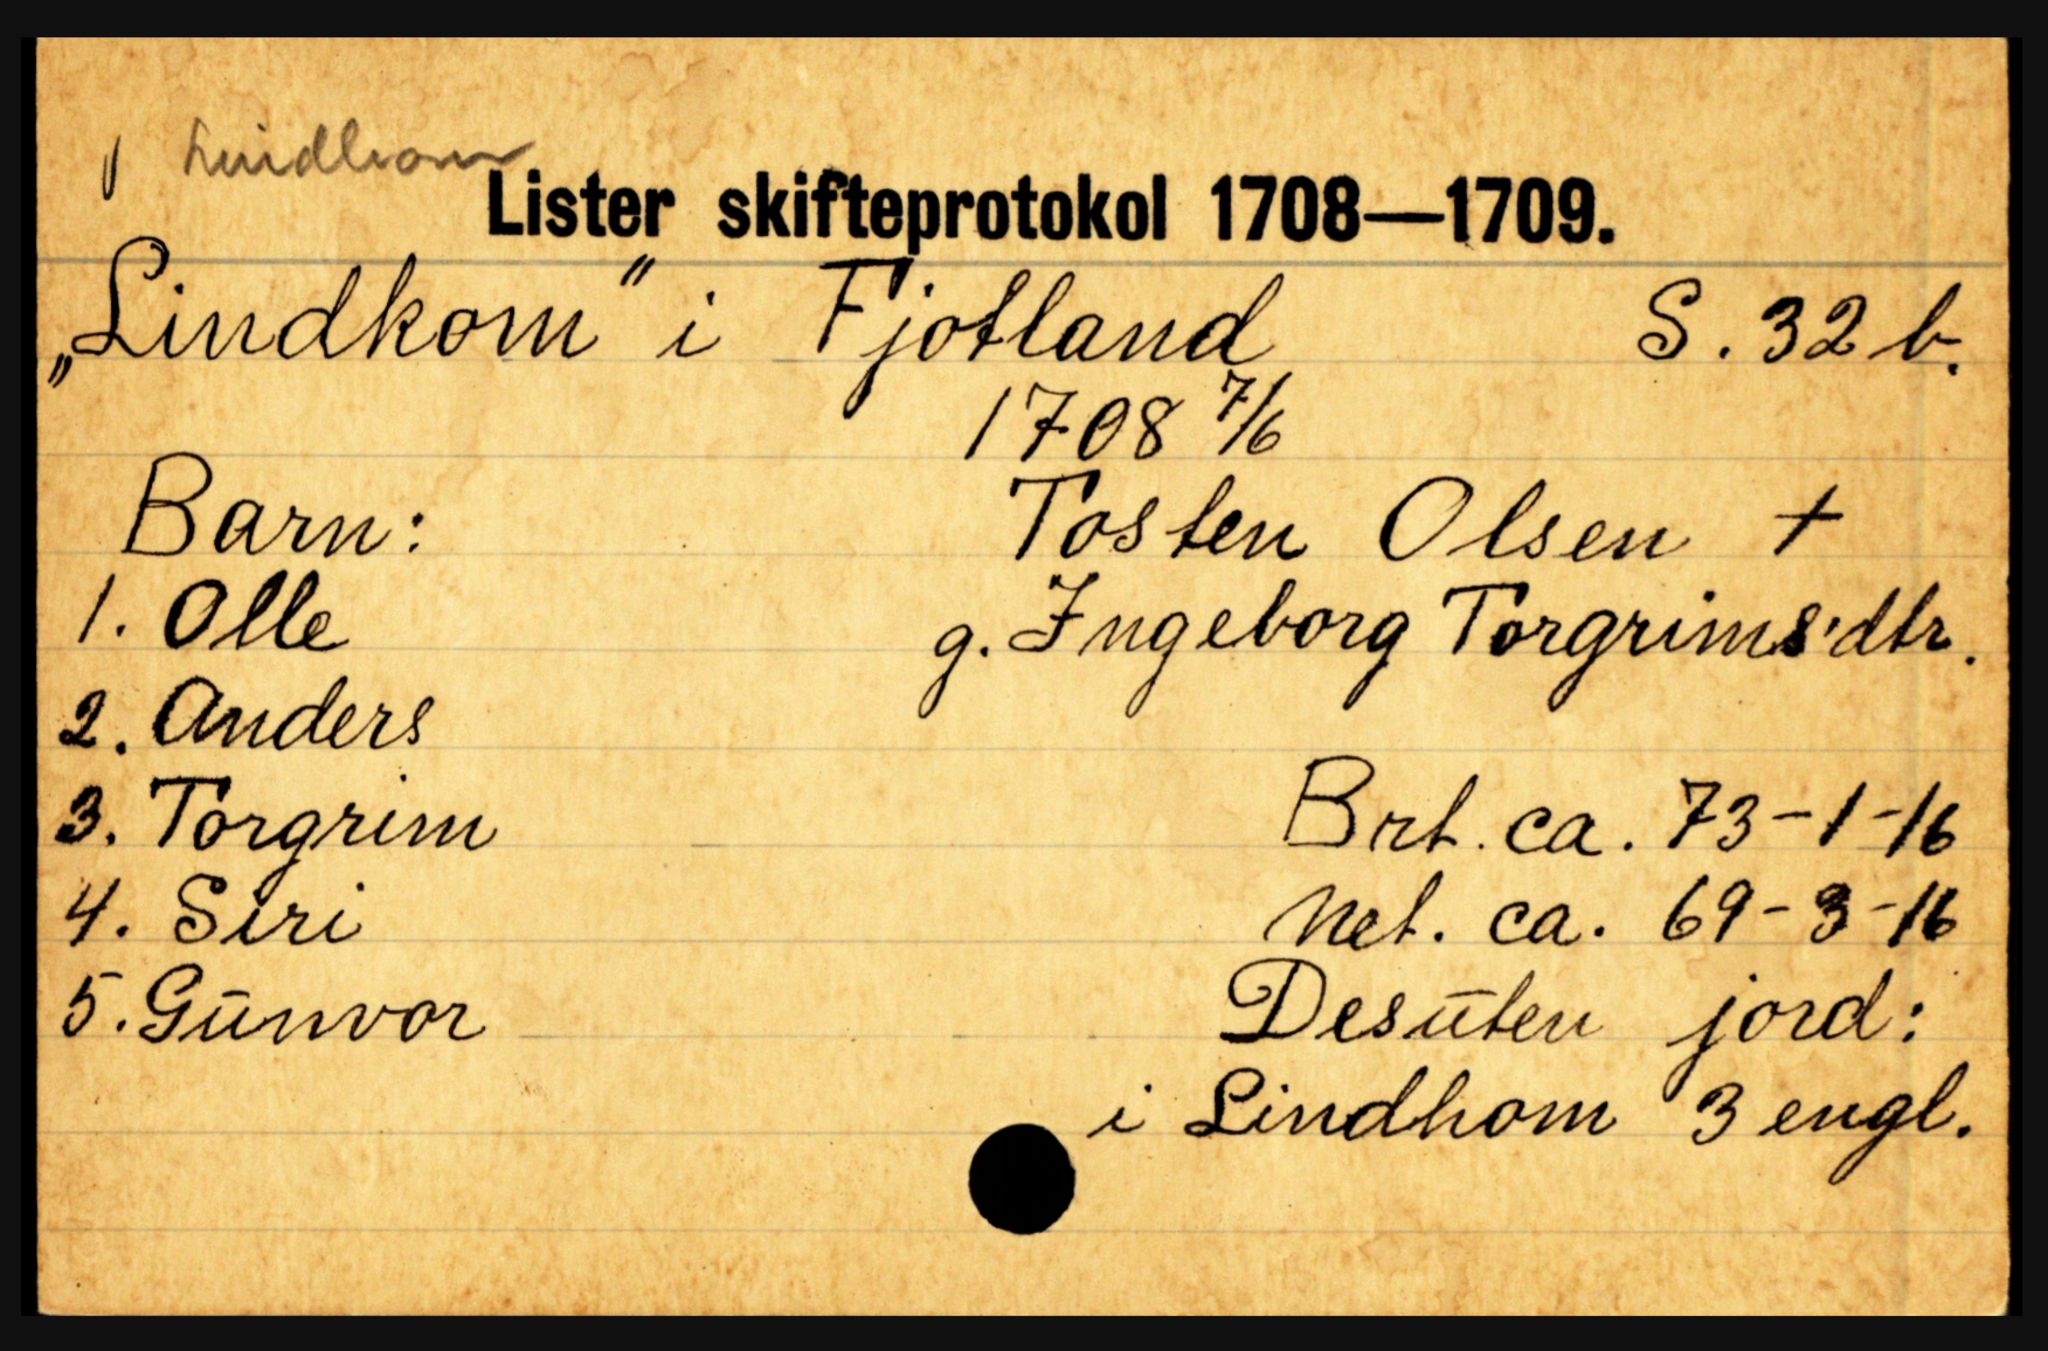 Lindhom
Lister skifteprotokol 1708—1709.
„Lindkom" i Fjotland S. 32 b.
1708 7/6
Barn: Tosten Olsen †
1. Olle g. Ingeborg Torgrims'dtr.
2. Anders
3. Torgrim Brt. ca. 73-1-16
4. Siri Net. ca. 69-3-16
5. Gūnvor Desūten jord:
i Lindhom 3 engl.